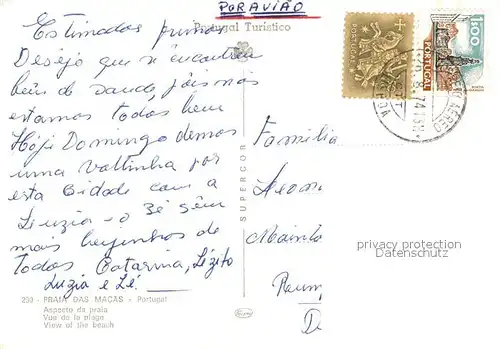 POR AVIÃO
Portugal Turístico
Estimados primos
Desejo que se encontrem
bem de saude, pois nós
estamos todos bem
Hoje Domingo demos
uma voltinha por
esta Cidade com a
Luzia e o Zé Sêm
mais beijinhos de
todos Catarina, Lézito
Luzia e Zé
Familia
SUPERCOR
PORTUGAL
1$00
PORTUGAL
CORREIO AEREO
privacy protection
Datenschutz
200 - PRAIA DAS MAÇAS - Portugal
Aspecto da praia
Vue de la plage
View of the beach